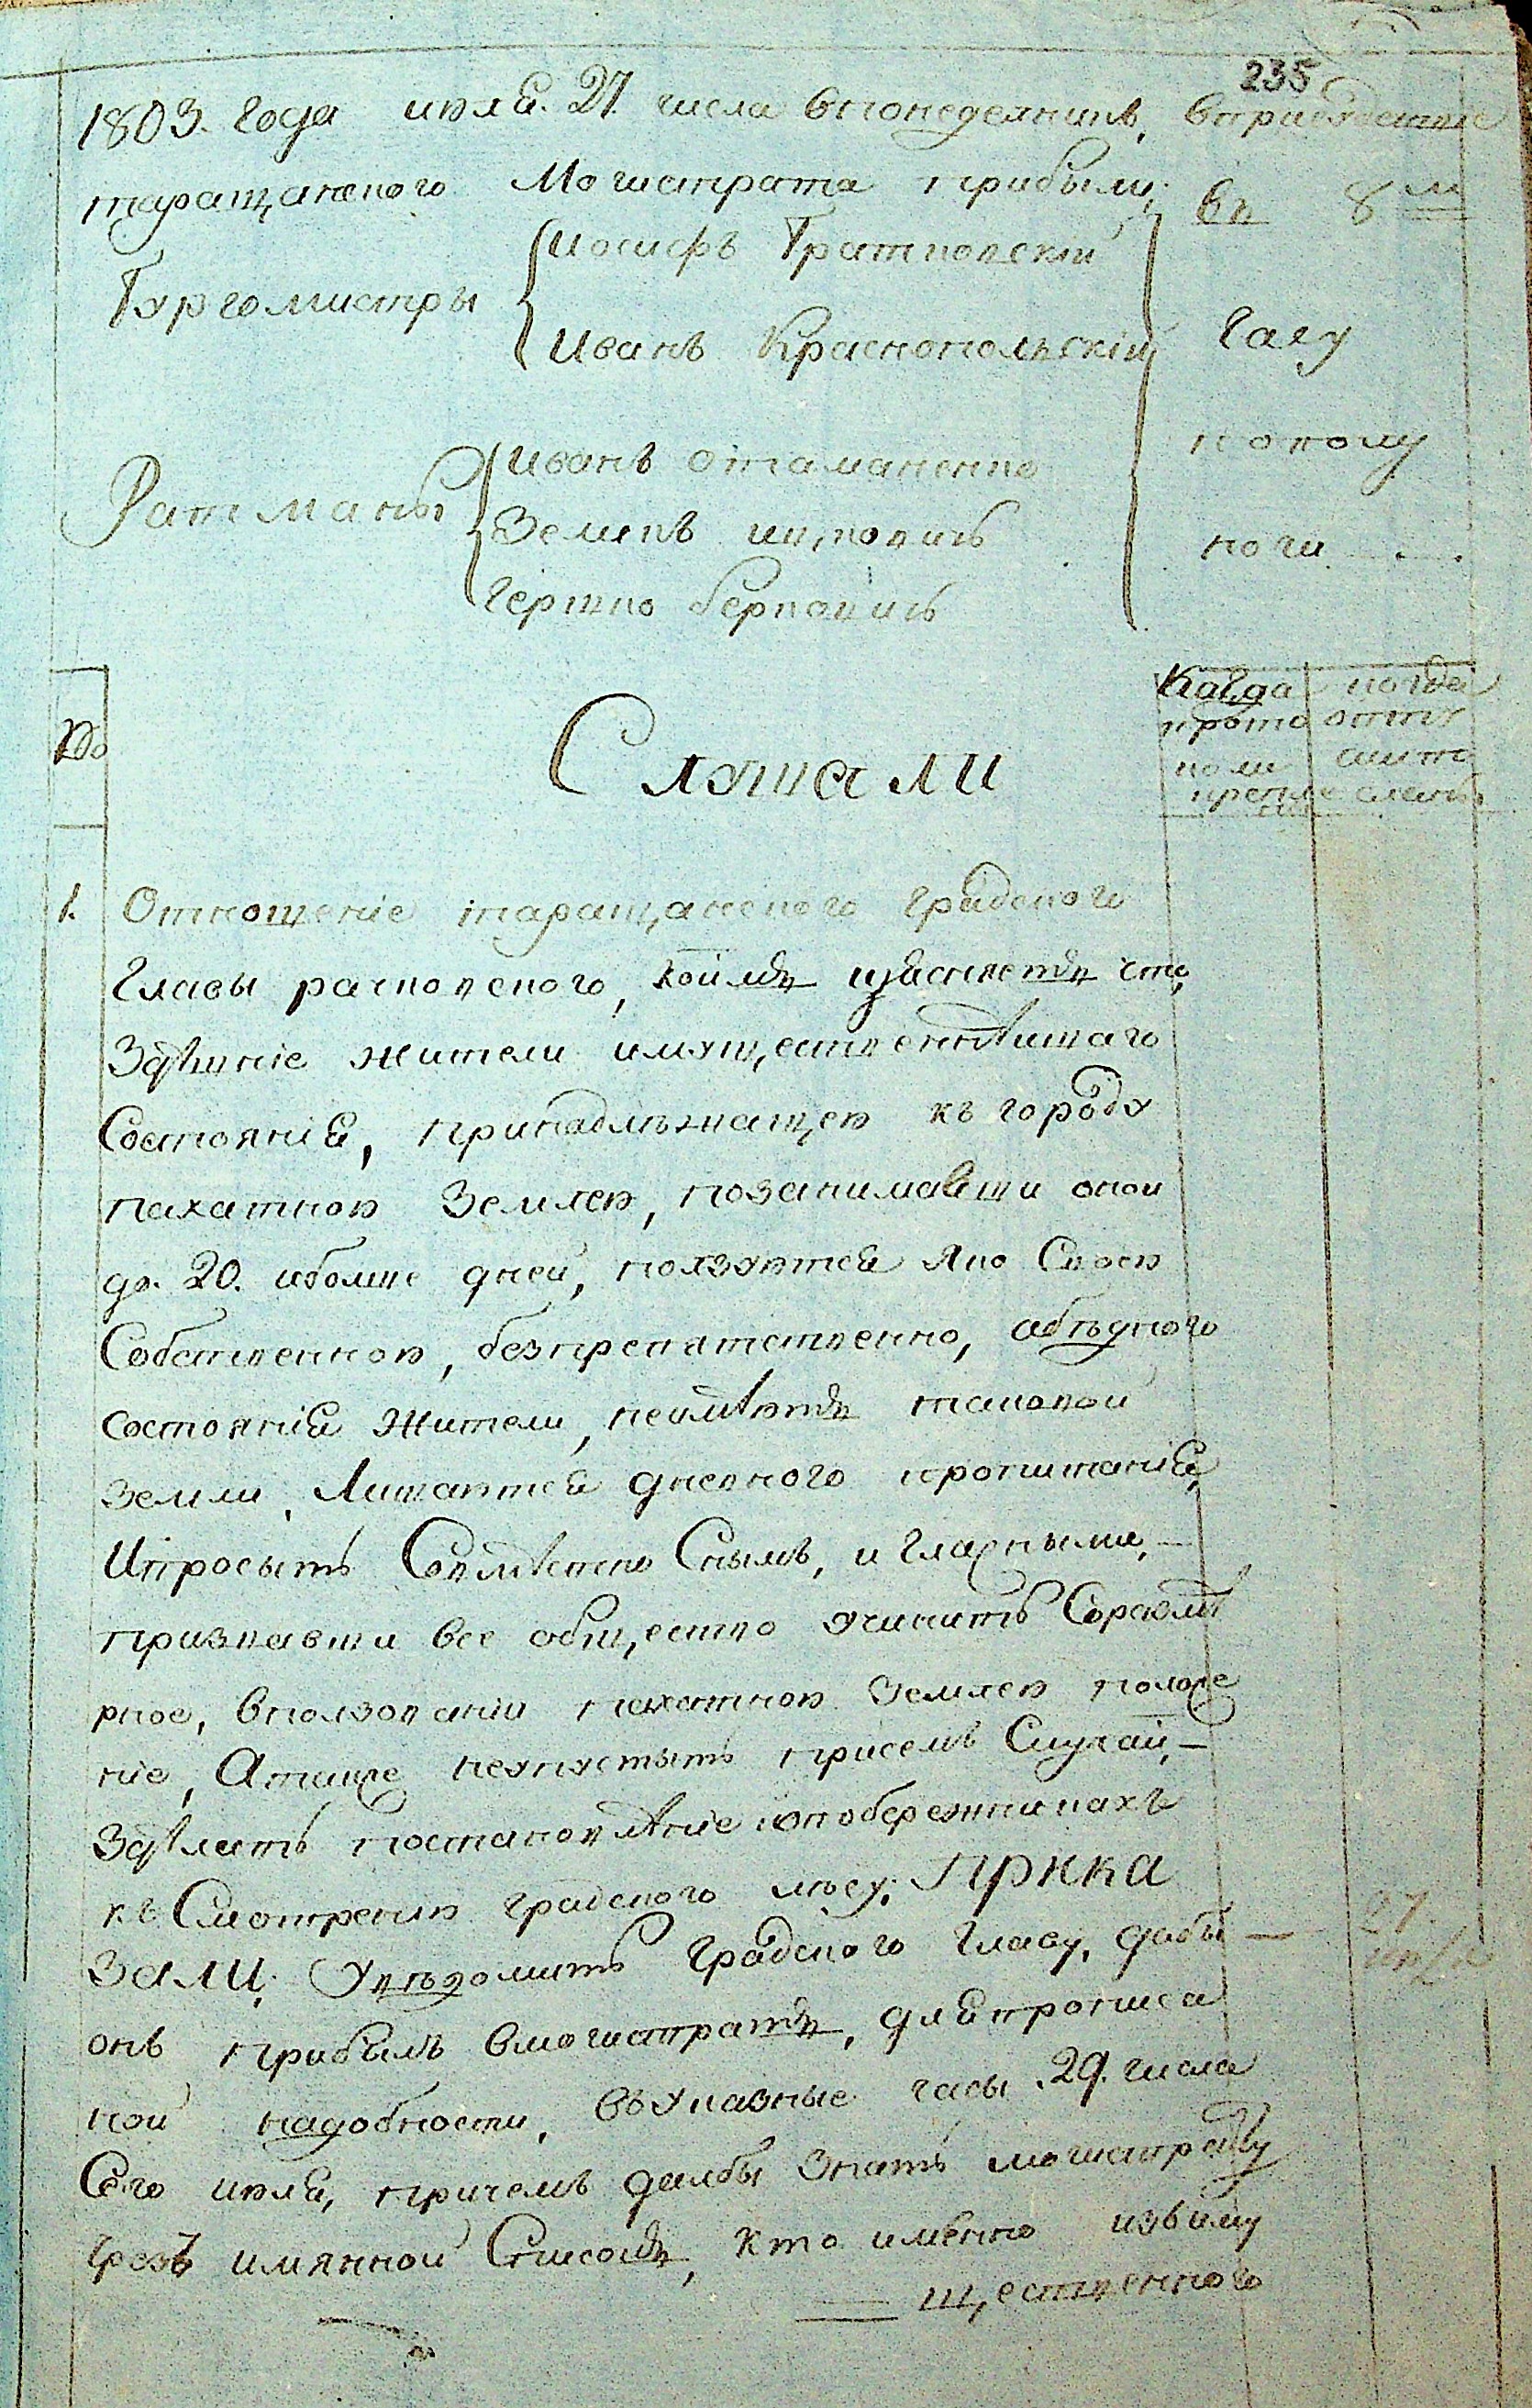 235
1803. года июля. 27. числа впонеделникъ, вприсудствие
таращанского Могистрата прибыли,
въ 8 м
часу
пополу
ночи
Бургомистры
Иосифъ Братковский
Иванъ Краснопольскій
Ратманы
Иванъ отаманенко
Земекъ ицковичъ
Гершко берковичъ
№
Слушали
Когда прото коли крепле
когда отту
1. Отношеніе таращанского градского
Главы рачковского, коимъ изясняетъ что,
Здѣшніе жители имущественнѣишаго
Состоянія, принадлѣжащею къ городу
пахатною Землею, позанимавши оной
до. 20. иболше дней, ползуются яко Своею
Собственною, безпрепятственно, абѣдного
состоянія жители, неимѣютъ таковой
земли, Лишаются дневного пропитанія,
Ипросытъ СовмѣстноСнымъ, и гласными,
призвавши все общество учинить Соразмѣ
рное, вползованіи пахатною Землею положе
ніе, Атакже неупустыть присемъ Случаи,
Здѣлать постановлѣніе опобережникахъ
къ Смотренію градского лѣсу: прика
зали: Увѣдомить градского главу, дабы
27. июля
онъ прибылъ вмогистратъ, для прописа
ной надобности, въуказные часы 29. числа
Сего июля, причемъ далбы знать могистрату
чрезъ имянной Списокъ, кто имѣнно изъиму
щественного